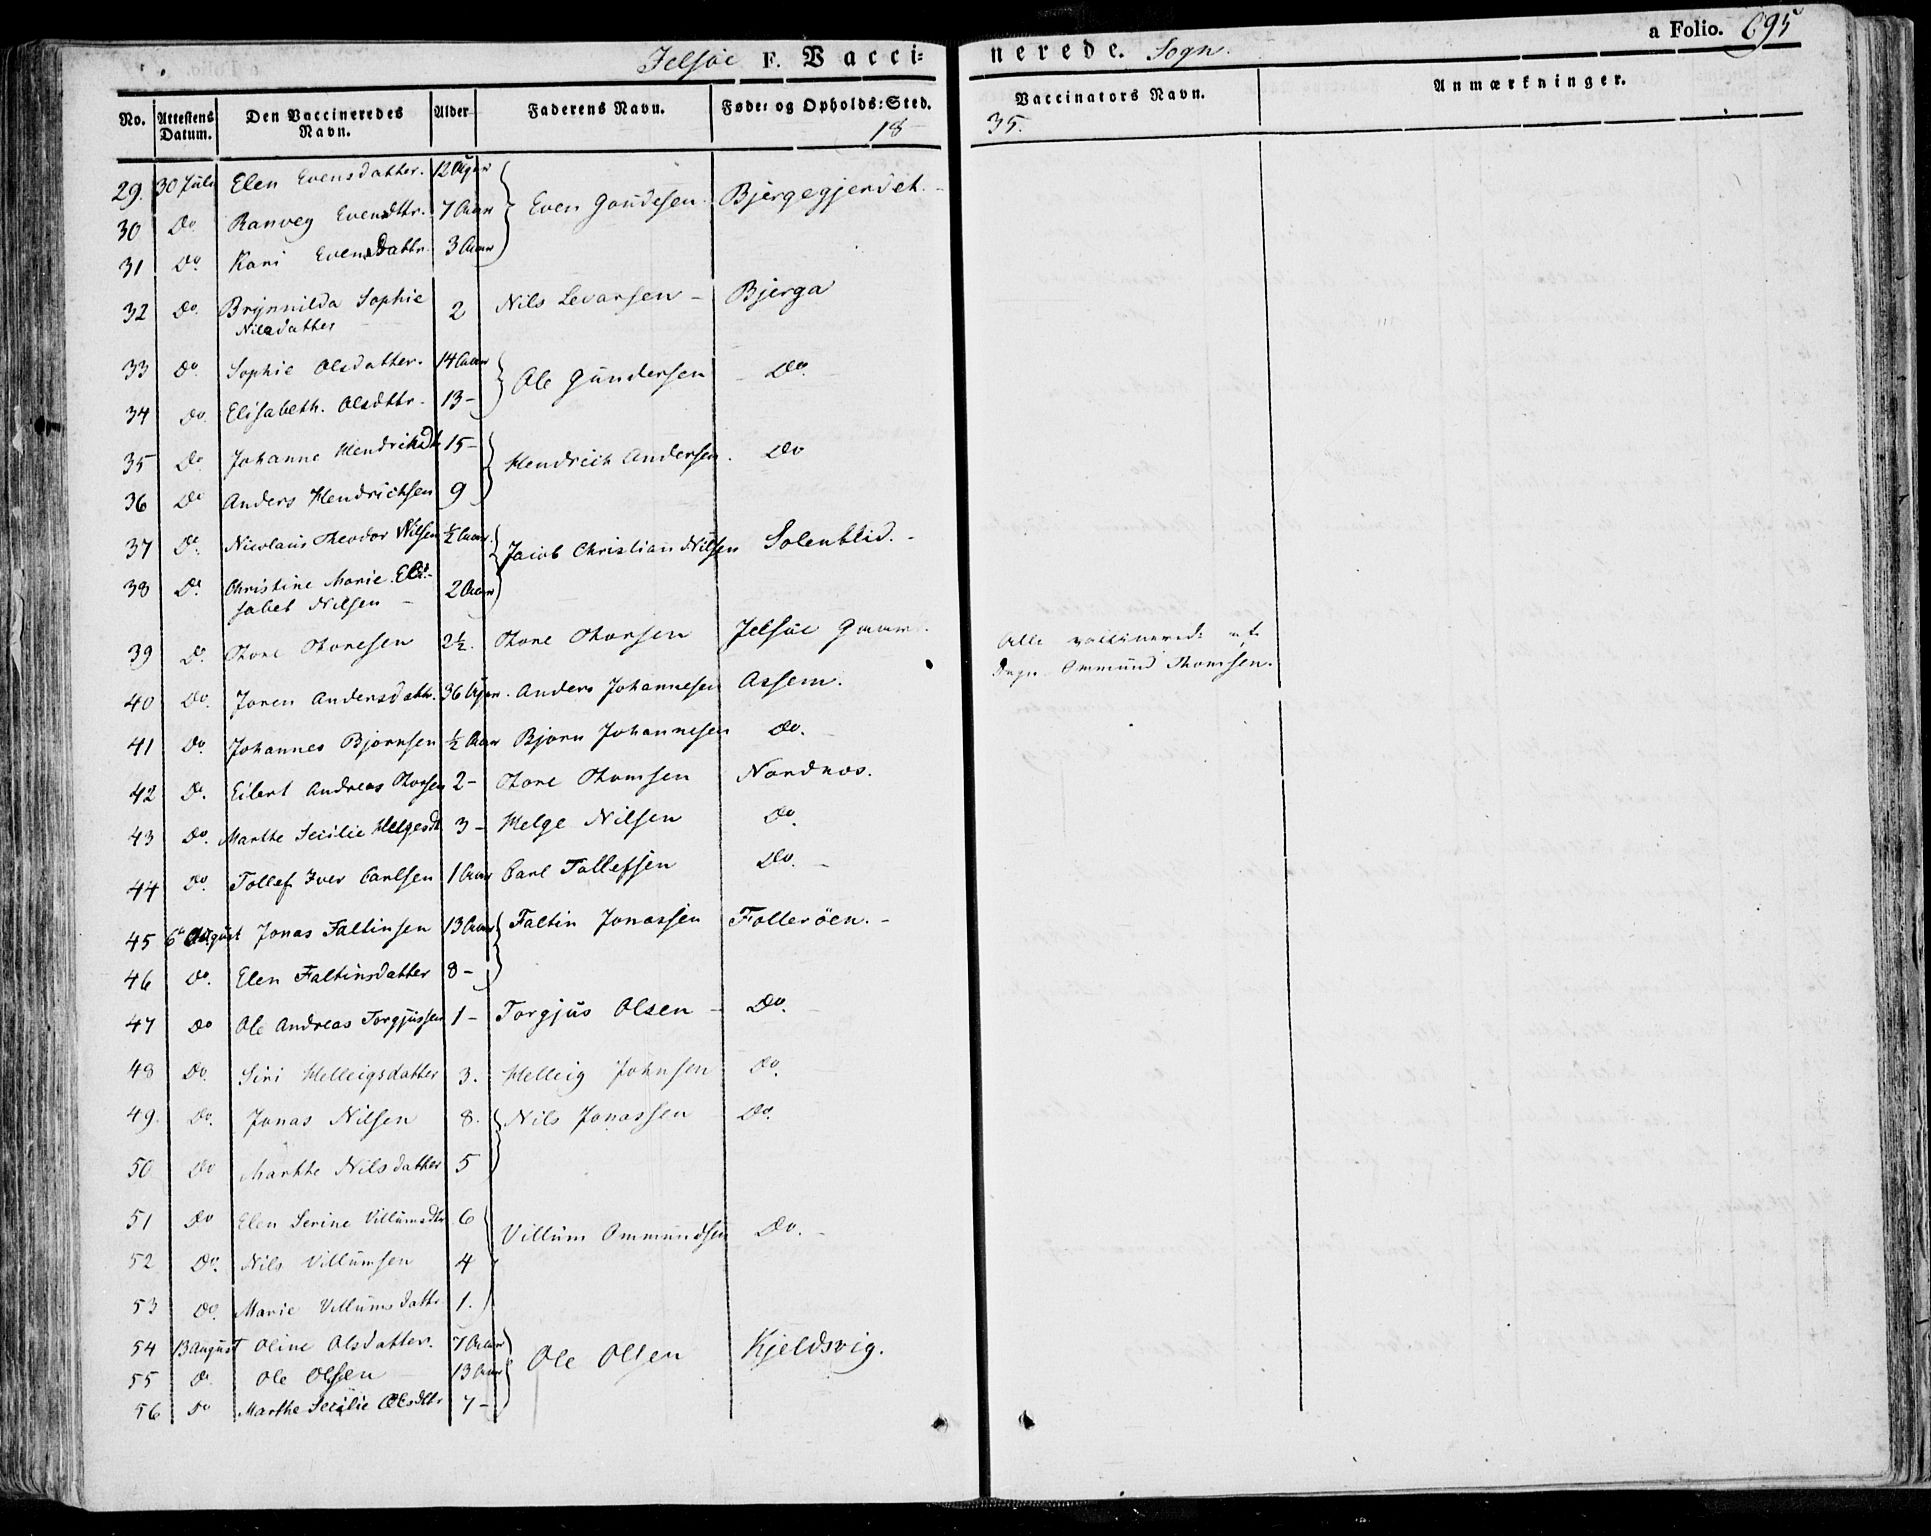 Jelsøe F. Vacci: nerede. Sogn. a Folio. 695
No. Attestens Datum. Den Vaccineredes Navn. Alder Faderens Navn. Føde: og Opholds: Sted. Vaccinators Navn. Anmærkninger.
18 35.
29. 30 Juli Elen Evensdatter. 12 Uger
30 Do Ranveg Evensdttr. 7 Aar Even Gaudesen. Bjergegjerdet.
31 Do. Kari Evensdattr. 3 Aar
32 Do. Brynnilda Sophie 2 Nils Levarsen - Bjerga
Nilsdatter
33 Do. Sophie Olsdatter. 14 Aar
Ole Gundersen Do.
34 Do. Elisabeth. Olsdttr. 13 -
35 Do Johanne Hendrichsdt 15 -
Hendrich Andersen. Do
36 Do Anders Hendrichsen 9
37 Do. Nicolaus Theodor Nilsen ½ Aar.
Jacob Christian Nilsen Solenblid. -
38 Do. Christine Marie Eli- 2 Aar
sabet Nilsen -
39 Do. Thore Thoresen 2½. Thore Thorsen Jelsøe Alle vaccinerede af
40 Do. Joren Andersdattr. 36 Uger. Anders Johannesen Assem. Ommund Thomsen.
41 Do. Johannes Bjørnsen ½ Aar Bjørn Johannesen Do.
42 Do. Eilert Andreas Thorsen 2 - Thore Thomsen Nordnæs.
43 Do. Marthe Secilie Helgesdt 3 - Helge Nilsen Do.
44 Do. Tollef Iver Carlsen 1 Aar Carl Tollefsen Do. -
45 6te August Jonas Faltinsen 13 Aar Faltin Jonassen Follerøen. -
46 Do. Elen Faltinsdatter 8 -
47 Do Ole Andreas Torgjussen 1 - Torgjus Olsen - Do.
48 Do. Siri Helleigsdatter 3. Helleig Johnsen Do.
49. Do. Jonas Nilsen 8. Nils Jonassen Do.
50 Do Marthe Nilsdatter 5
51 Do Elen Serine Villumsdtr 6
Villum Ommundsen Do. -
52 Do. Nils Villumsen 4
53 Do. Marie Villumsdattr 1.
54 13 August Oline Olsdatter. 7 Aar
Ole Olsen Kjeldsvig.
55 Do Ole Olsen 13 Aar
56 Do Marthe Secilie Olsdttr 7 -